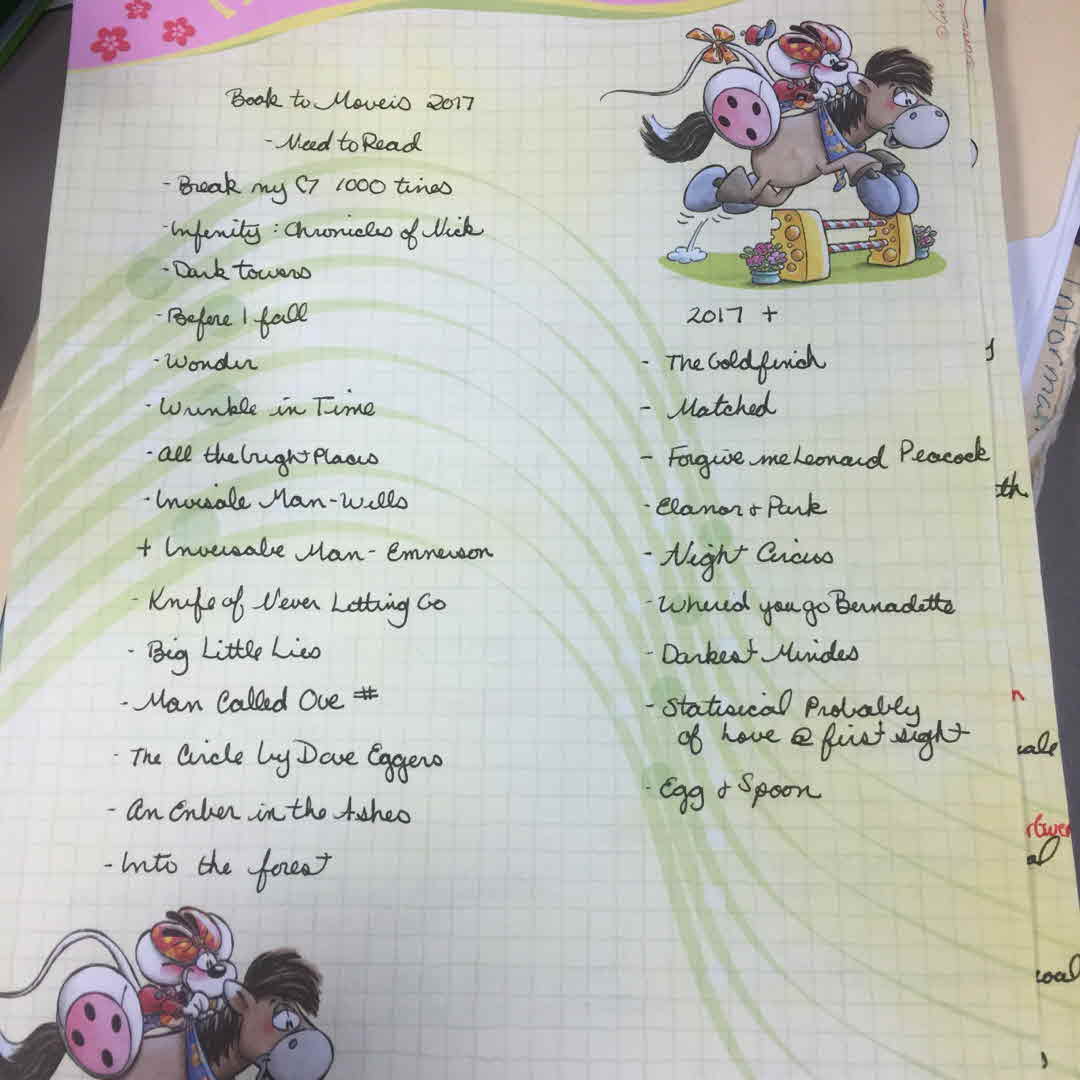 Book to Moveis 2017
- Need to Read
- Break my ♡ 1000 tines
- Infenity : Chronicles of Nick
- Dark towers
- Before I fall
- Wonder
- Wrinkle in Time
- All the bright Places
- Invisale Man - Wells
+ Inversabe Man - Emnerson
- Knife of Never Letting Go
- Big Little Lies
- Man Called Ove #
- The Circle by Dave Eggers
- An Enber in the Ashes
- Into the forest
2017 +
- The Goldfinich
- Matched
- Forgive me Leonard Peacock
- Elanor & Park
- Night Circus
- Where'd you go Bernadette
- Darkest Mindes
- Statisical Probably
of Love @ first sight
- Egg & Spoon